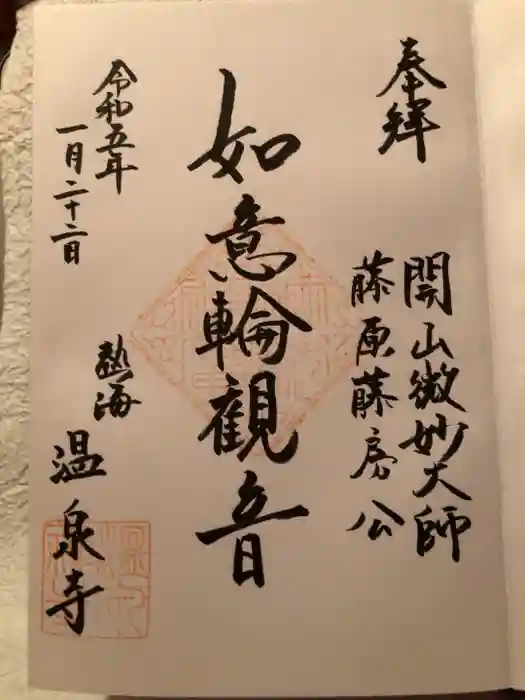 奉拜
開山微妙大師
藤原藤房公
如意輪観音
令和五年
一月二十二日
熱海
温泉寺